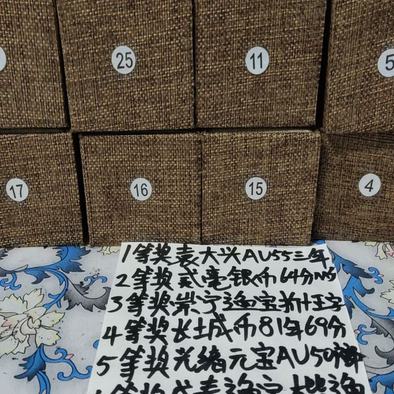 25
11
5
17
16
15
4
1等奖袁大兴AU55三年
2等奖贰毫银币64分NS
3等奖崇宁通宝折十玉字
4等奖长城币81年69分
5等奖光绪元宝AU50